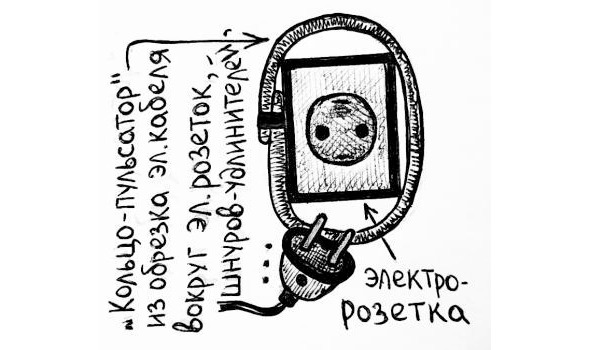 „Кольцо-пульсатор"
из обрезка эл.кабеля
вокруг эл.розеток,
шнуров-удлинителей,
...
электро-
розетка